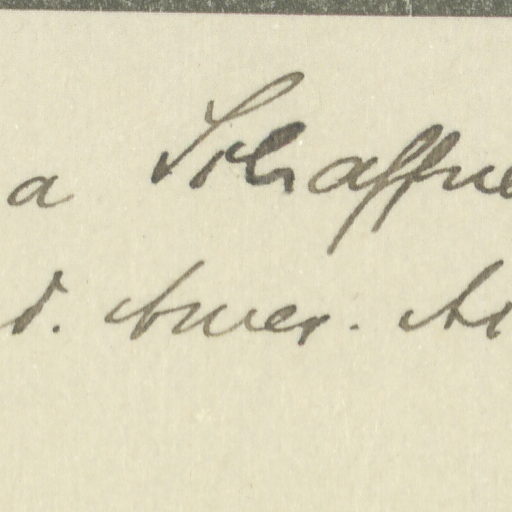 a Schaffne
d. Amer. Ac